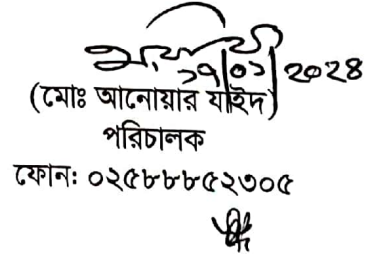 ১৭/০১/২০২৪
(মোঃ আনোয়ার যাইদ)
পরিচালক
ফোন: ০২৫৮৮৮৫২৩০৫